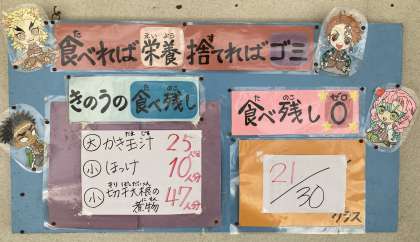 食べれば栄養捨てればゴミ
きのうの食べ残し
大 かき玉汁 25人分
小 ほっけ 10人分
小 切干大根の煮物 47人分
食べ残し0
21/30
クラス